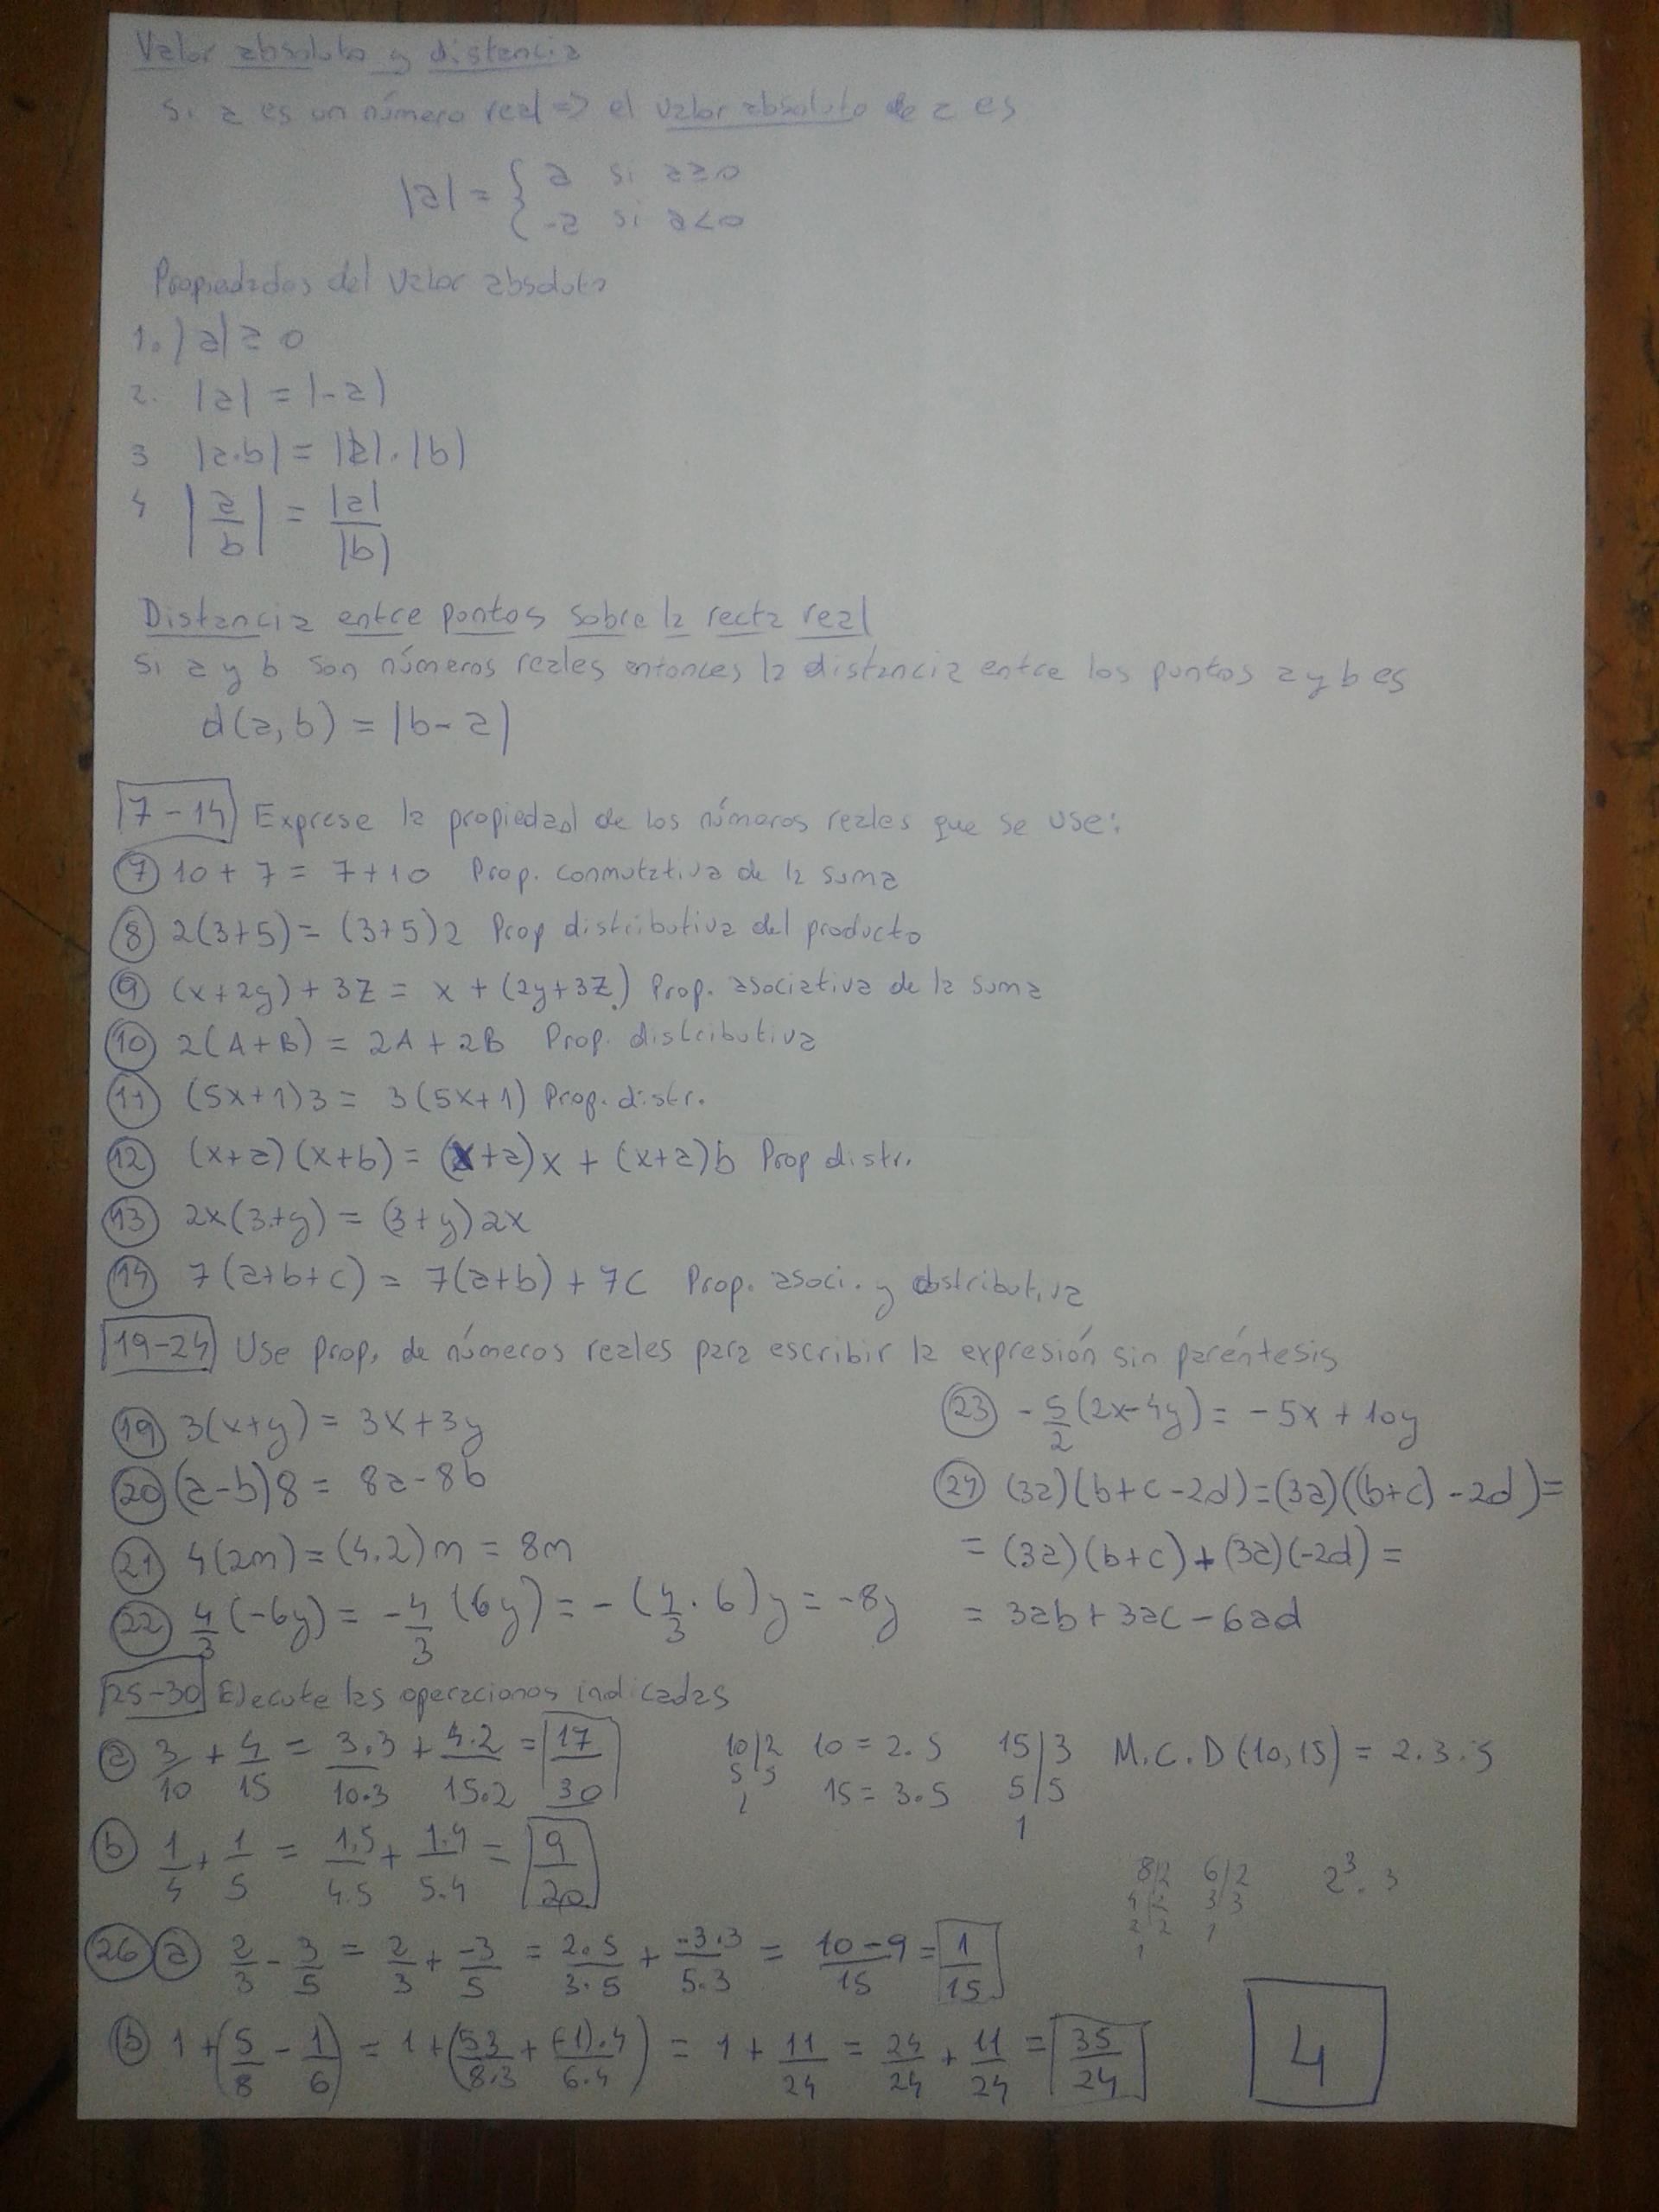 Valor absoluto y distancia
Si a es un número real => el valor absoluto de a es
|a| = { a si a ≥ 0
-a si a < 0
Propiedades del valor absoluto
1. |a| ≥ 0
2. |a| = |-a|
3 |a·b| = |a|·|b|
4 |a/b| = |a|/|b|
Distancia entre puntos sobre la recta real
Si a y b son números reales entonces la distancia entre los puntos a y b es
d(a,b) = |b-a|
7-14 Exprese la propiedad de los números reales que se use:
7 10 + 7 = 7 + 10 Prop. conmutativa de la suma
8 2(3+5) = (3+5)2 Prop distributiva del producto
9 (x+2y) + 3z = x + (2y+3z) Prop. asociativa de la suma
10 2(A+B) = 2A + 2B Prop. distributiva
11 (5x+1)3 = 3(5x+1) Prop. distr.
12 (x+a)(x+b) = (x+a)x + (x+a)b Prop distr.
13 2x(3+y) = (3+y)2x
14 7(a+b+c) = 7(a+b) + 7c Prop. asoci. y distributiva
19-24 Use prop. de números reales para escribir la expresión sin paréntesis
19 3(x+y) = 3x+3y
20 (a-b)8 = 8a-8b
21 4(2m) = (4.2)m = 8m
22 4/3 (-6y) = -4/3 (6y) = -(4/3 · 6)y = -8y
23 -5/2 (2x-4y) = -5x + 10y
24 (3a)(b+c-2d) = (3a)((b+c)-2d) =
= (3a)(b+c) + (3a)(-2d) =
= 3ab + 3ac - 6ad
25-30 Ejecute las operaciones indicadas
a 3/10 + 4/15 = 3.3/10.3 + 4.2/15.2 = 17/30
10|2 10 = 2.5 15|3 M.C.D (10,15) = 2.3.5
5 5 15 = 3.5 5|5
1 1
b 1/4 + 1/5 = 1.5/4.5 + 1.4/5.4 = 9/20
8|2 6|2 2³.3
4|2 3|3
2 2 1
1
26 a 2/3 - 3/5 = 2/3 + -3/5 = 2.5/3.5 + -3.3/5.3 = 10-9/15 = 1/15
b 1 + (5/8 - 1/6) = 1 + (5.3/8.3 + (-1).4/6.4) = 1 + 11/24 = 24/24 + 11/24 = 35/24
4